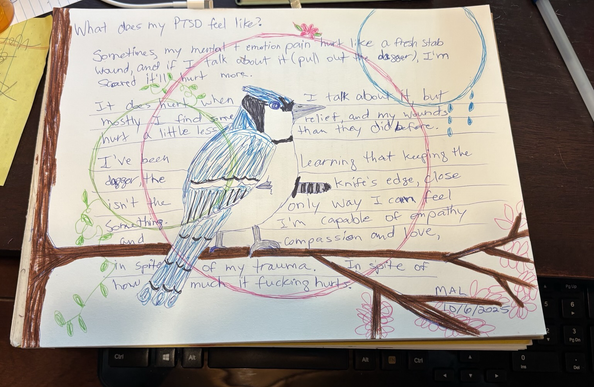 What does my PTSD feel like?
Sometimes, my mental + emotion pain hurt like a fresh stab
wound, and if I talk about it (pull out the dagger), I'm
scared it'll hurt more.
It does hurt, when I talk about it, but
mostly I find some relief, and my wounds
hurt a little less than they did before.
I've been learning that keeping the
dagger, the knife's edge, close
isn't the only way I can feel
something. I'm capable of empathy
and compassion and love,
in spite of my trauma. In spite of
how much it fucking hurts.
MAL
10/6/2025
Ctrl
Alt
Alt
Ctrl